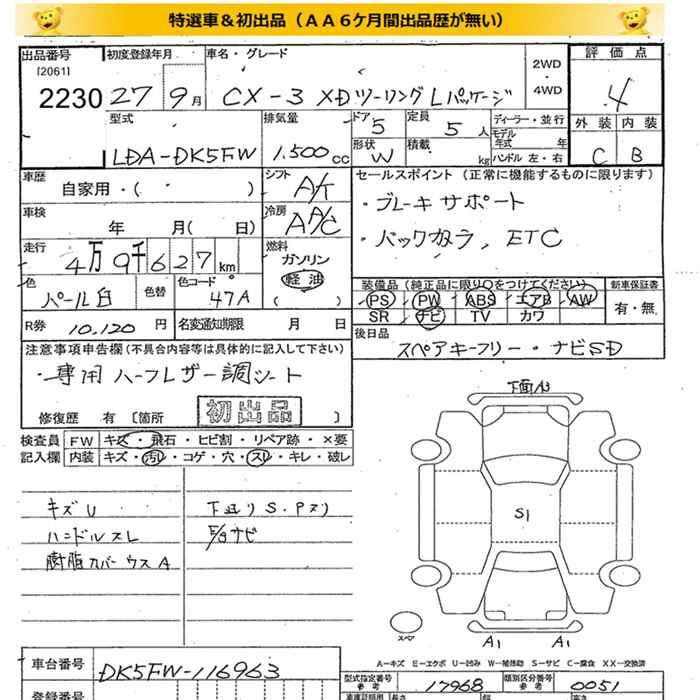 特選車&初出品(AA6ケ月間出品歴が無い)
出品番号 初度登録年月 車名・グレード 評価点
[2061]
2230 27 9月 CX-3 XDツーリングLパッケージ 2WD・4WD 4
型式 排気量 ドア 5 定員 5人 ディーラー・並行 外装 内装
LDA-DK5FW 1,500cc 形状 W 積載 kg モデル年式 年 ハンドル 左・右 C B
車歴 自家用・( ) シフト A/T セールスポイント(正常に機能するものに限ります)
車検 年 月( 日) 冷房 A/C ・ブレーキサポート
走行 4万9千627km 燃料 ガソリン 軽油 ( ) ・バックカメラ、ETC
色 パール白 色替 色コード 47A 装備品(純正品に限り○をつけてください) 新車保証書
PS PW ABS エアB AW 有・無
SR ナビ TV カワ
R券 10,120円 名変通知期限 月 日 後日品
注意事項申告欄(不具合内容等は具体的に記入して下さい) スペアキーフリー・ナビSD
・専用ハーフレザー調シート
修復歴 有〔箇所 初出品 〕
検査員 FW キズ・飛石・ヒビ割・リペア跡・×要
記入欄 内装 キズ・汚レ・コゲ・穴・スレ・キレ・破レ
キズU 下廻りS.Pヌリ
ハンドルスレ E/gサビ
樹脂カバーウスA
下面A3
S1
スペア
A1 A1
A-キズ E-エクボ U-凹み W-補修跡 S-サビ C-腐食 XX-交換済
車台番号 DK5FW-116963
型式指定番号 参考 17968 類別区分番号 参考 0051
登録番号